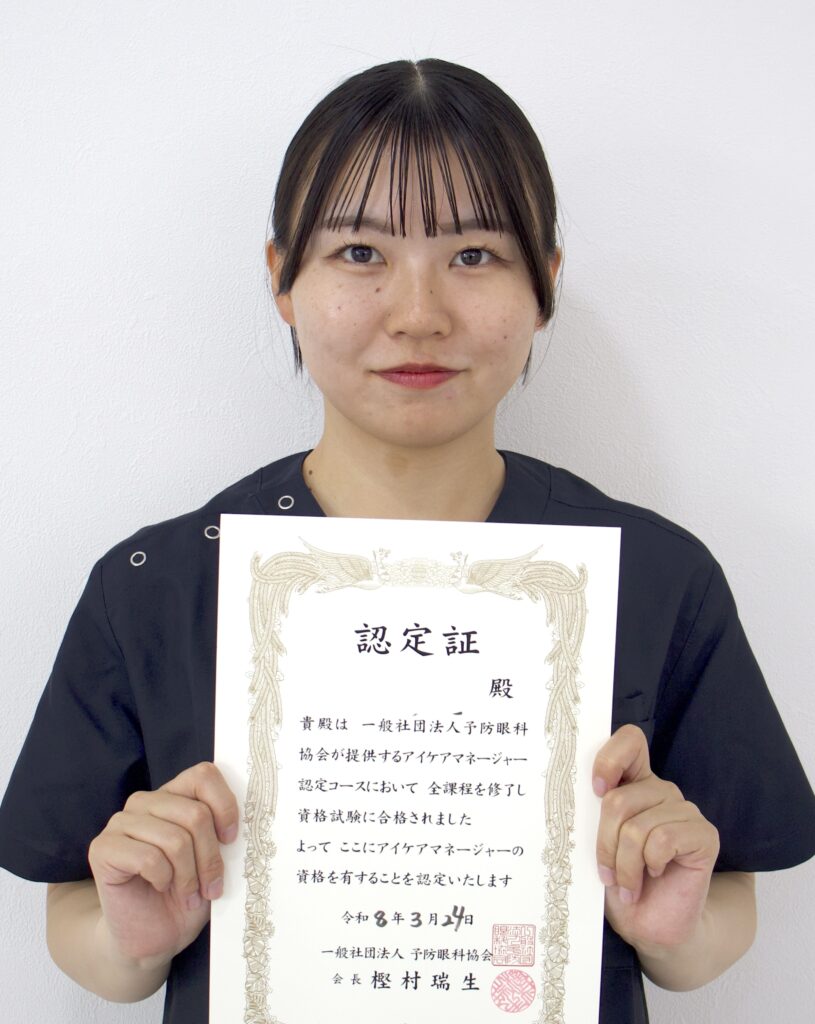 認定証
殿
貴殿は 一般社団法人予防眼科
協会が提供するアイケアマネージャー
認定コースにおいて 全課程を修了し
資格試験に合格されました
よって ここにアイケアマネージャーの
資格を有することを認定いたします
令和8年3月24日
一般社団法人 予防眼科協会
会長 樫村瑞生